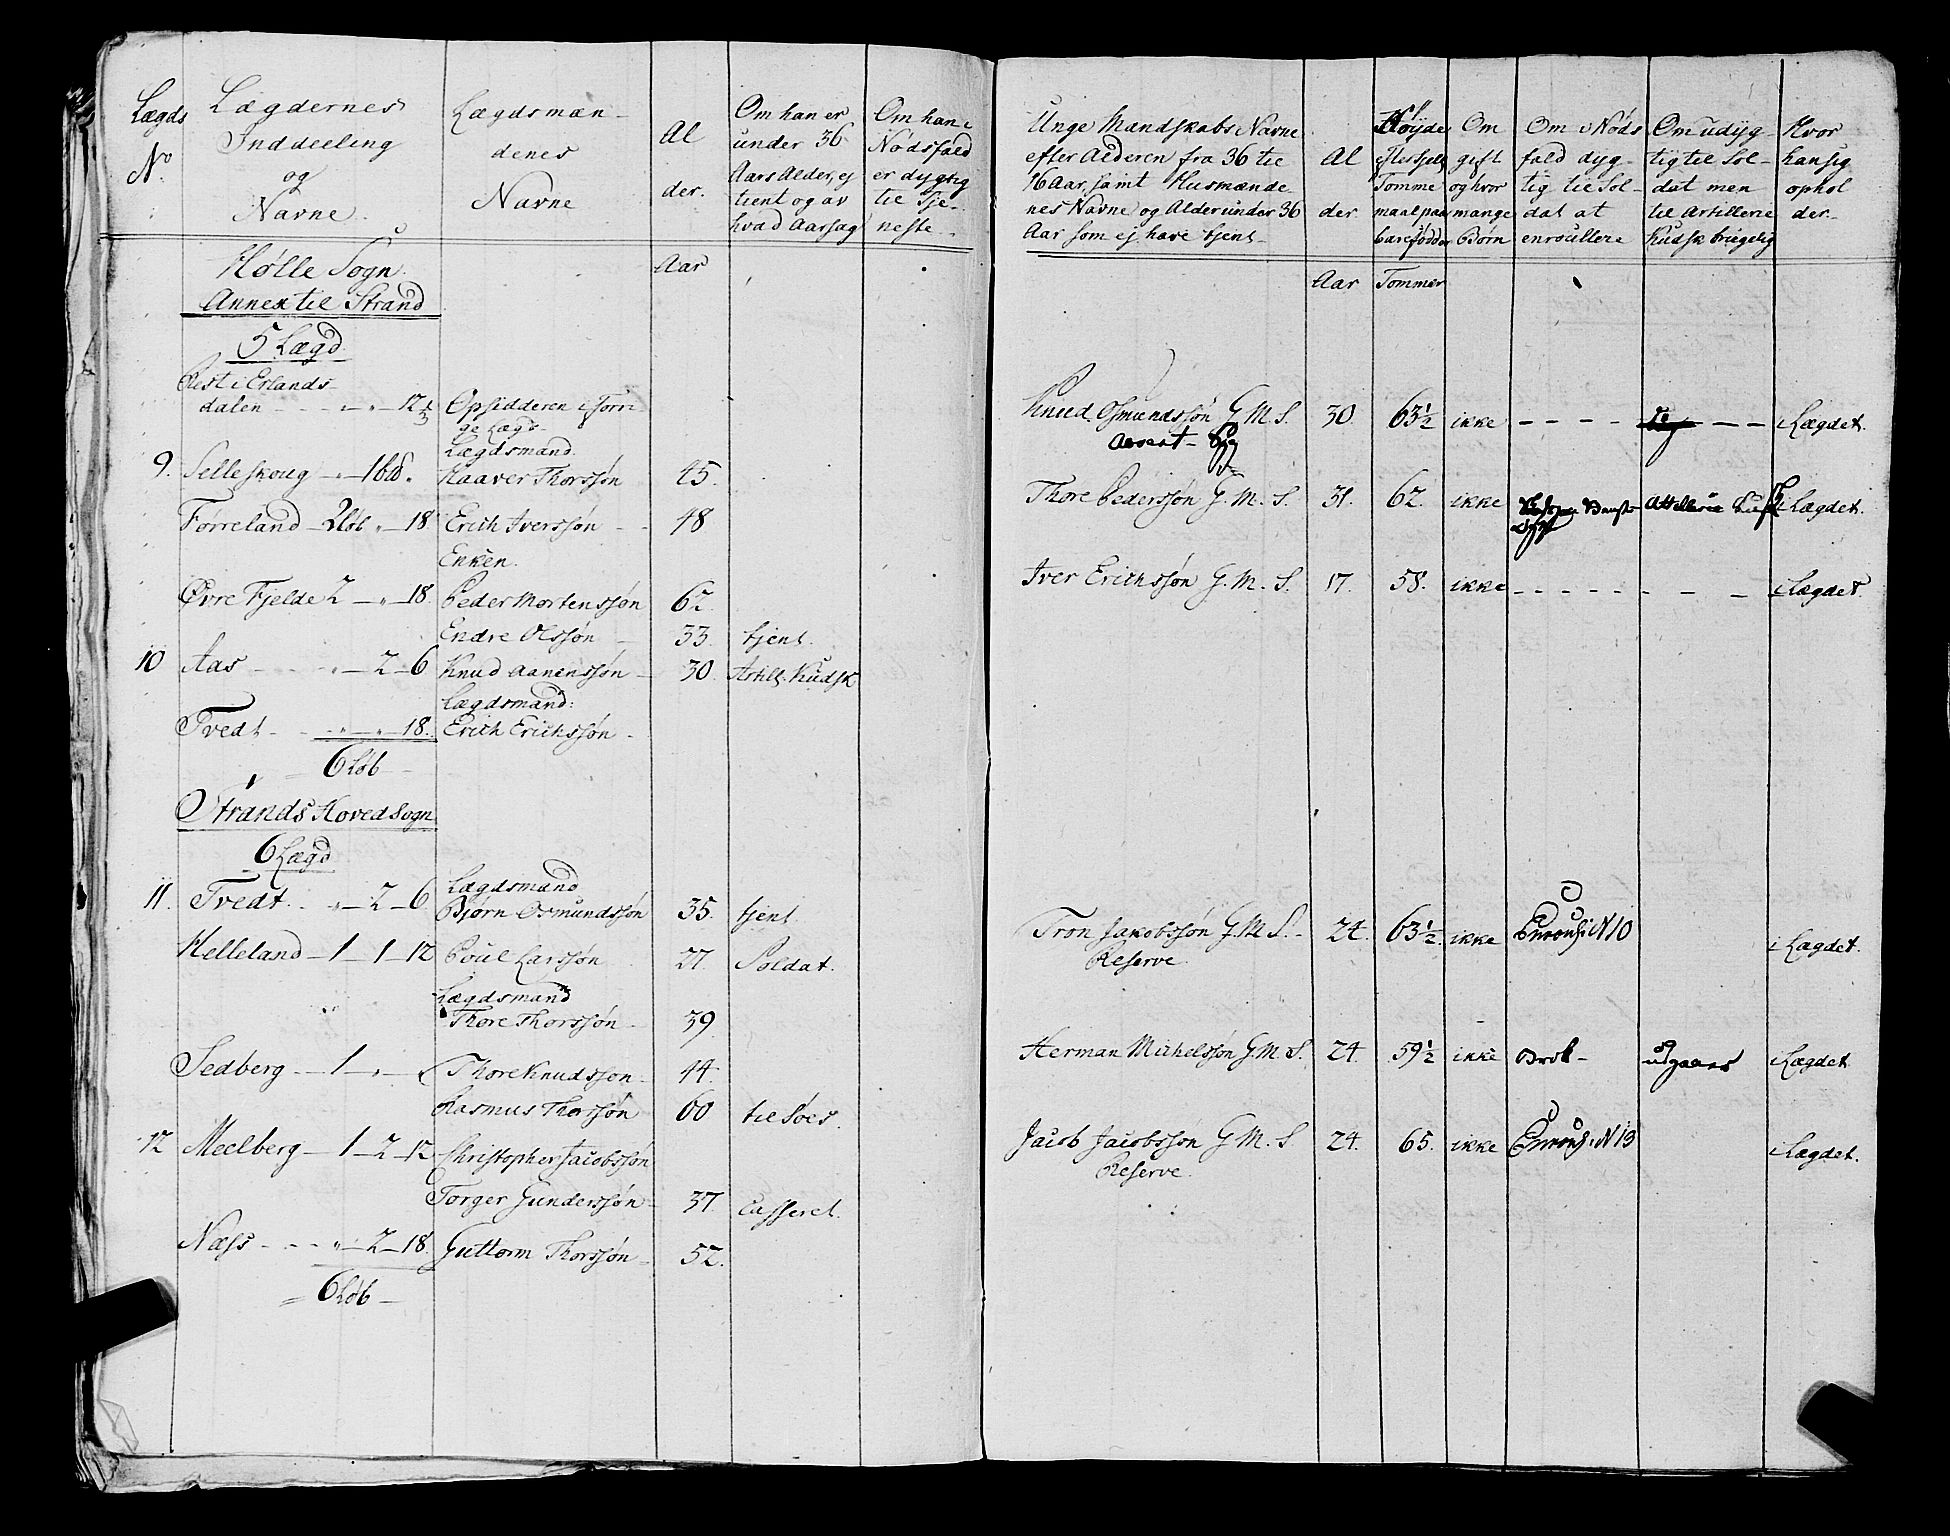 Lægds
No
Lægdernes
Inddeeling
og
Navne
Lægdsmæn-
denes
Navne
Al
der.
Om han er
under 36
Aars Alder, ej
tient og av
hvad Aarsag
Om han i
Nødsfald
er dygtig
til Tje-
neste
Aar
Hølle Sogn
Annex til Strand
5 Lægd
Rest i Erlands-
dalen - - - „ - „ - 12 1/3 Opsidderen i Forri-
ge Lægd
Lægdsmand
9. Selleskoug - „ - 1 Haaver Thorssøn 45.
Førreland - 2 Løb „ - 18 Erich Iverssøn - - 48
Enken
Øvre Fjelde 2 - „ - 18 Peder Mortenssøn 62.
Endre Olssøn - 33. tjent.
10 Aas - - - „ - 2 - 6 Knud Aanenssøn - 30. Artill. Kudsk
Lægdsmand:
Tvedt - - „ - „ - 18. Erich Erichssøn -
= 6 Løb -
Strands Hovedsogn
6 Lægd
Lægdsmand
11. Tvedt - „ - 2 - 6 Bjørn Osmundssøn 35. tjent
Helleland - 1 - 1 - 12 Poul Larssøn 27. Soldat.
Lægdsmand
Thore Thorssøn - 39
Sedberg - - 1 - „ - Thore Knudssøn - 44.
Rasmus Thorssøn 60 til Søes.
12 Meelberg - 1 - 2 - 12 Christopher Jacobssøn
Torger Gunderssøn - 37. Casseret.
Næss - - - „ - 2 - 18. Guttorm Thorssøn - 52.
= 6 Løb -
Unge Mandskabs Navne
efter Alderen fra 36 til
16 Aar, samt Husmænde-
nes Navne og Alder under 36
Aar som ej have tjent -
Al
der.
Høyde
Tomme
maal paa
barefødder
Om
gift
og hvor
mange
Børn
Om i Nøds
fald dyg-
tig til Sol-
dat at
enroullere
Om udyg-
tig til Sol-
dat men
til Artillerie
Kudsk brugelig
Hvor
han sig
ophol
der.
Aar Tommer
Knud Osmundssøn G. M. S. 30. 63 1/2 ikke - - - - - - i Lægdet.
Thore Pederssøn G. M. S. 31. 62. ikke i Lægdet.
Iver Erichssøn G. M. S. 17. 58. ikke - - - - - - - - - i Lægdet.
Tron Jakobssøn G. M. S. - 24. 63 1/2. ikke Enroul: N 10 i Lægdet.
Reserve
Herman Michelssøn G. M. S. 24. 59 1/2 ikke Brok - udgaaer i Lægdet
Jacob Jacobssøn G M. S 24. 65. ikke Enroul: N 13 i Lægdet.
Reserve